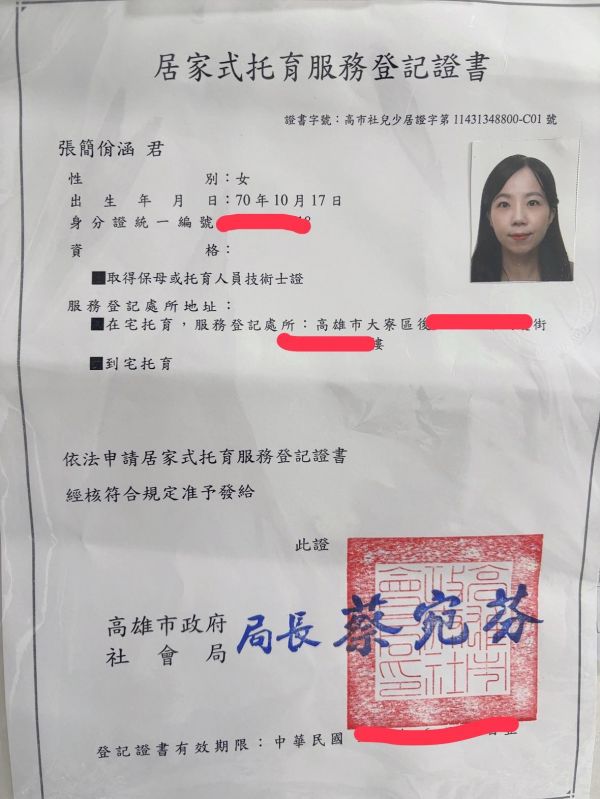 居家式托育服務登記證書
證書字號：高市社兒少居證字第11431348800-C01號
張簡偗涵 君
性別：女
出生年月日：70年10月17日
身分證統一編號
資格：
■取得保母或托育人員技術士證
服務登記處所地址：
■在宅托育，服務登記處所：高雄市大寮區後 街
樓
■到宅托育
依法申請居家式托育服務登記證書
經核符合規定准予發給
此證
高雄市政府
社會局
局長 蔡宛芬
登記證書有效期限：中華民國